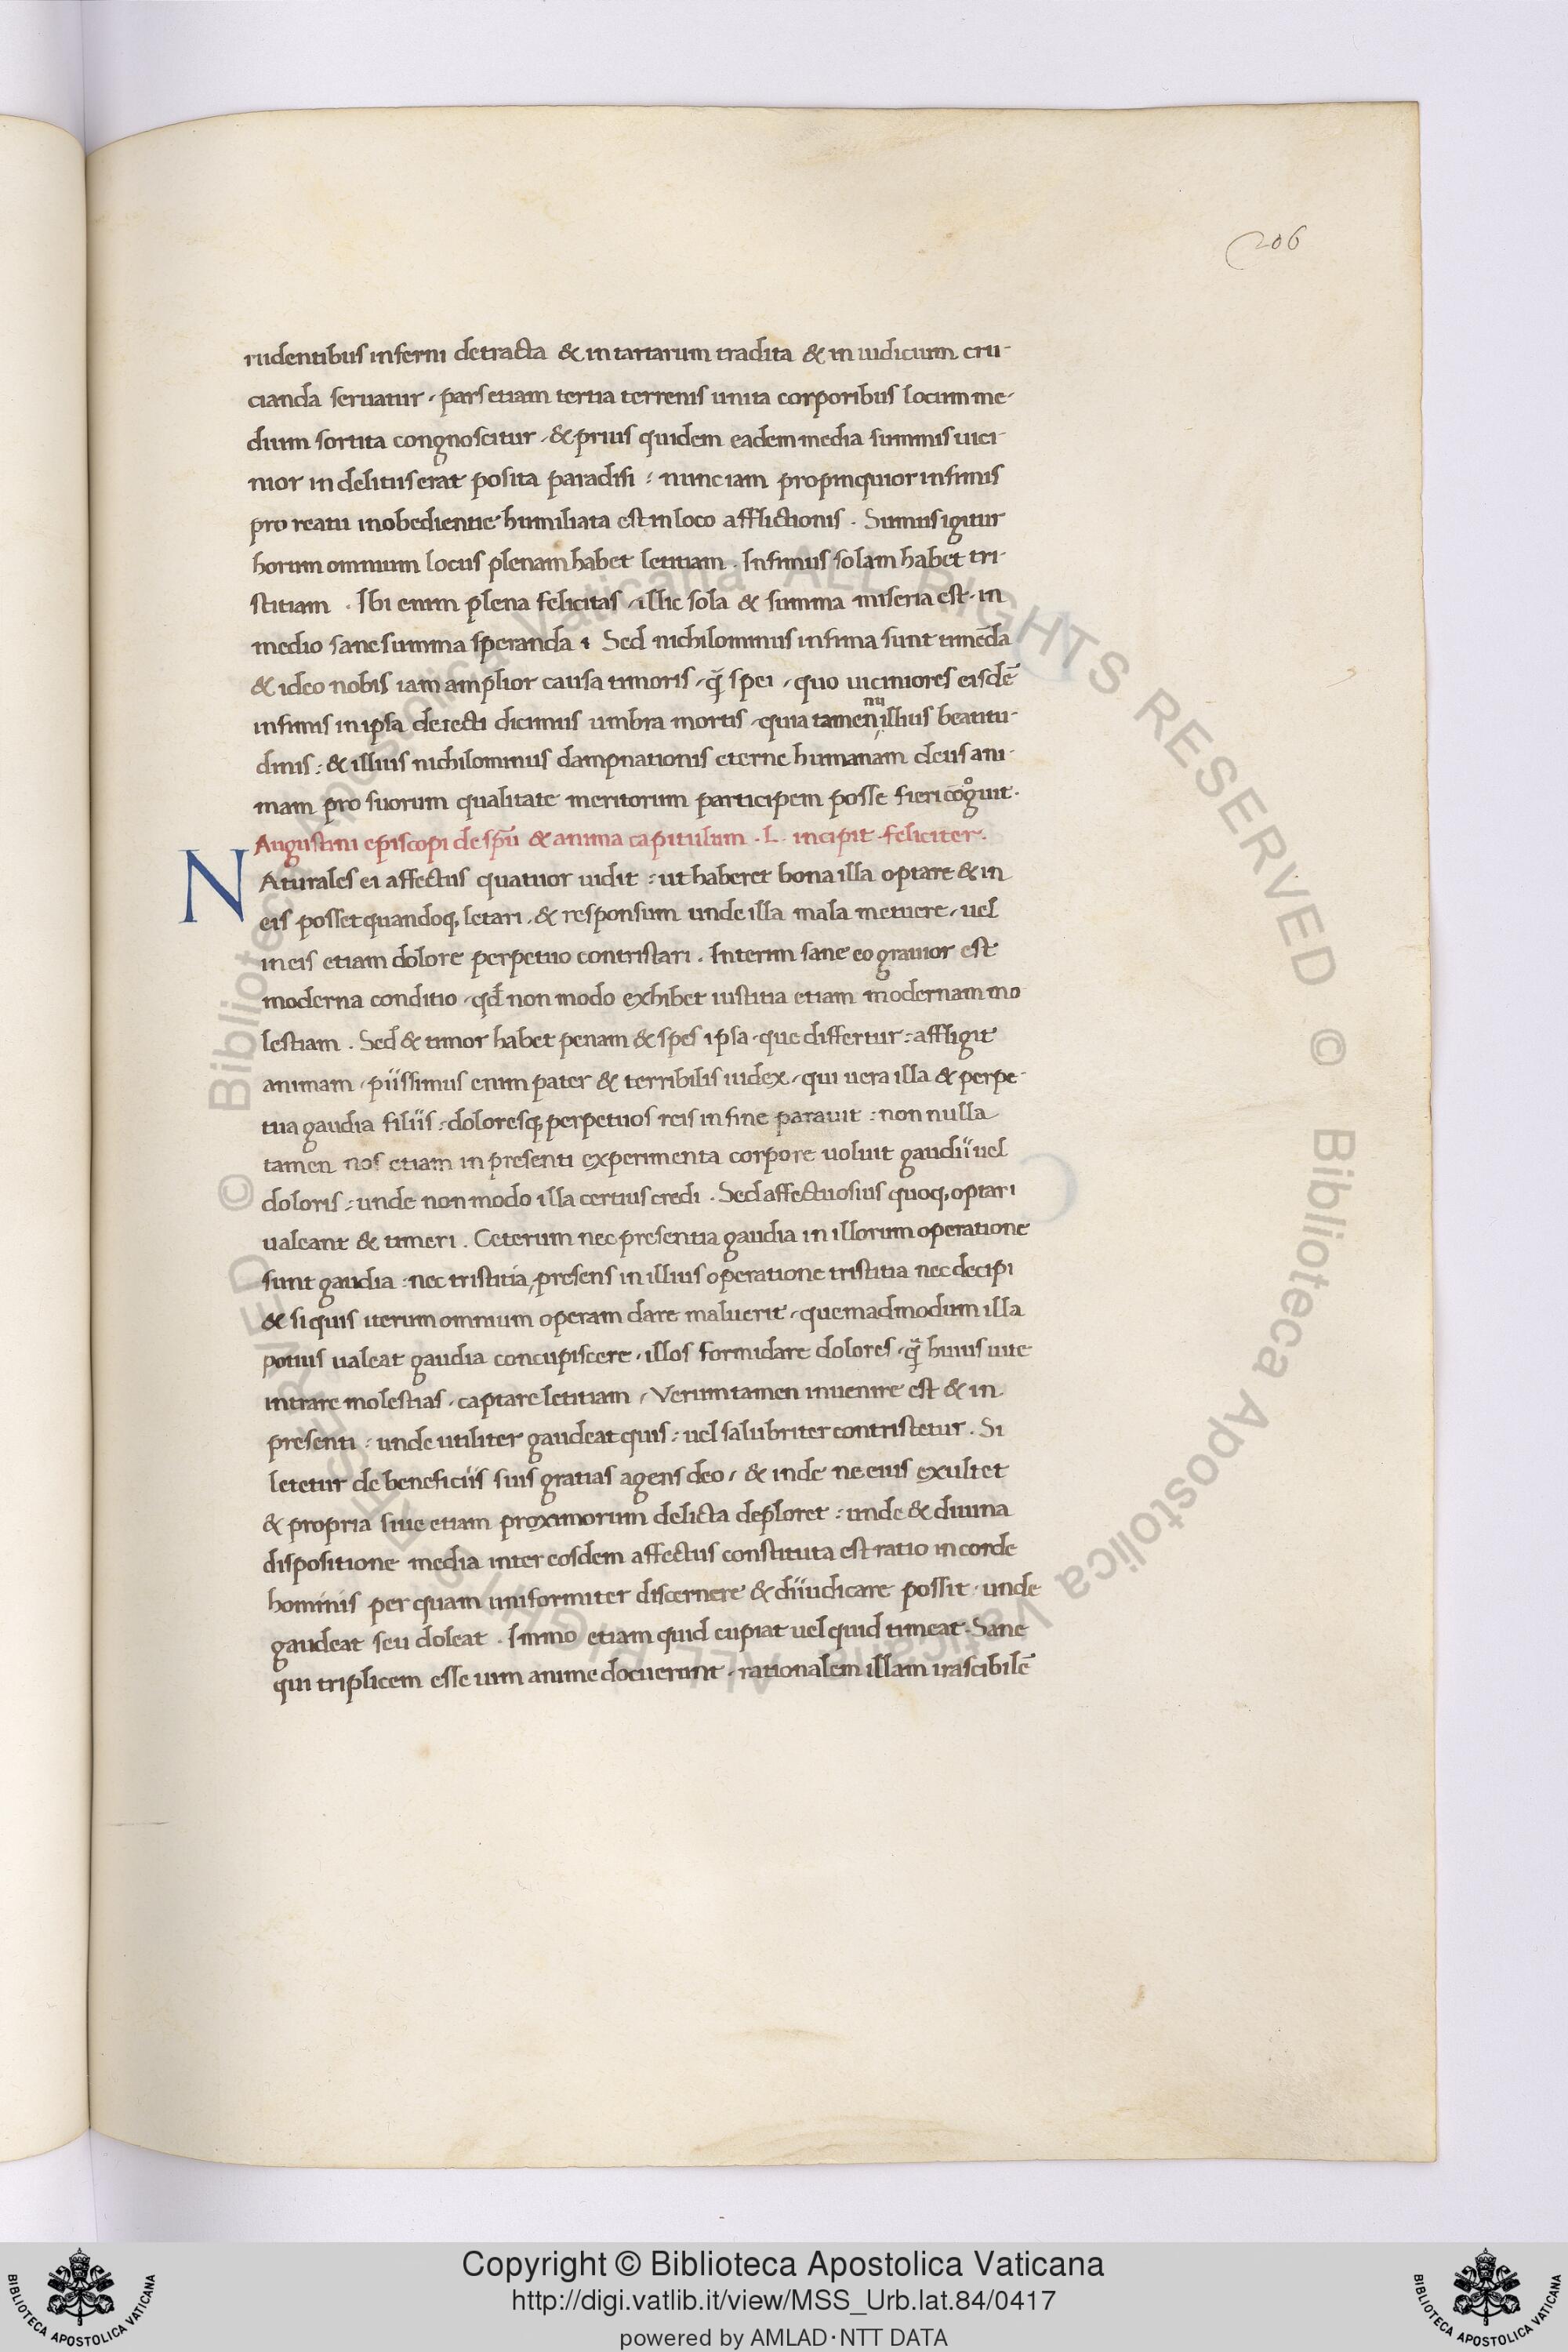 206
rudentibus inferni detracta & in tartarum tradita & in iudicium cru-
cianda seruatur, pars etiam tertia terrenis unita corporibus locum me-
dium sortita congnoscitur, & prius quidem eadem media summis uici-
nior in delitus erat posita paradisi : nunc iam propinquior infimis
pro reatu inobedientie humiliata est in loco afflictionis . Sumus igitur
horum omnium locus plenam habet letitiam . Infimus solam habet tri-
stitiam . Ibi enim plena felicitas, illic sola & summa miseria est, in
medio sane summa speranda . Sed nichilominus infima sunt timēda
& ideo nobis iam amplior causa timoris, q̄ spei, quo uiciniores eisdē
infimis in ipsa deiecti dicimus umbra mortis, quia tamen illius beatitu-
dinis : & illius nichilominus dampnationis eterne humanam deus ani-
mam pro suorum qualitate meritorum participem posse fieri cōgͦuit.
Augustini episcopi de sp̄u & anima capitulum . L . incipit feliciter.
NAturales ei affectus quatuor uidit : ut haberet bona illa optare & in
eis posset quandoq, letari, & responsum unde illa mala metuere, uel
in eis etiam dolore perpetuo contristari . Interim sane eo grauior est
moderna conditio, qd̄ non modo exhibet iustitia etiam modernam mo
lestiam . Sed & timor habet penam & spes ipsa, que differtur : affligit
animam, piissimus enim pater & terribilis iudex, qui uera illa & perpe-
tua gaudia filiis : doloresq, perpetuos reis in fine parauit : non nulla
tamen nos etiam in presenti experimenta corpore uoluit gaudii uel
doloris : unde non modo illa certius credi . Sed affectuosius quoq, optari
ualeant & timeri . Ceterum nec presentia gaudia in illorum operatione
sunt gaudia : nec tristitia, presens in illius operatione tristitia nec decipi
& si quis iterum omnium operam dare maluerit, quemadmodum illa
potius ualeat gaudia concupiscere, illos formidare dolores, q̄ huius uite
intrare molestias, captare letitiam, Verumtamen inuenire est & in
presenti : unde utiliter gaudeat quis : uel salubriter contristetur . Si
letetur de beneficiis suis gratias agens deo, & inde ne eius exultet
& propria siue etiam proximorum delicta deploret : unde & diuina
dispositione media inter eosdem affectus constituta est ratio in corde
hominis per quam uniformiter discernere & diiudicare possit, unde
gaudeat seu doleat . Immo etiam quid cupiat uel quid timeat. Sane
qui triplicem esse uim anime docuerunt, rationalem illam irascibilē
Copyright © Biblioteca Apostolica Vaticana
http://digi.vatlib.it/view/MSS_Urb.lat.84/0417
powered by AMLAD·NTT DATA
BIBLIOTECA APOSTOLICA VATICANA
BIBLIOTECA APOSTOLICA VATICANA
© Biblioteca Apostolica Vaticana ALL RIGHTS RESERVED © Biblioteca Apostolica Vaticana ALL RIGHTS RESERVED